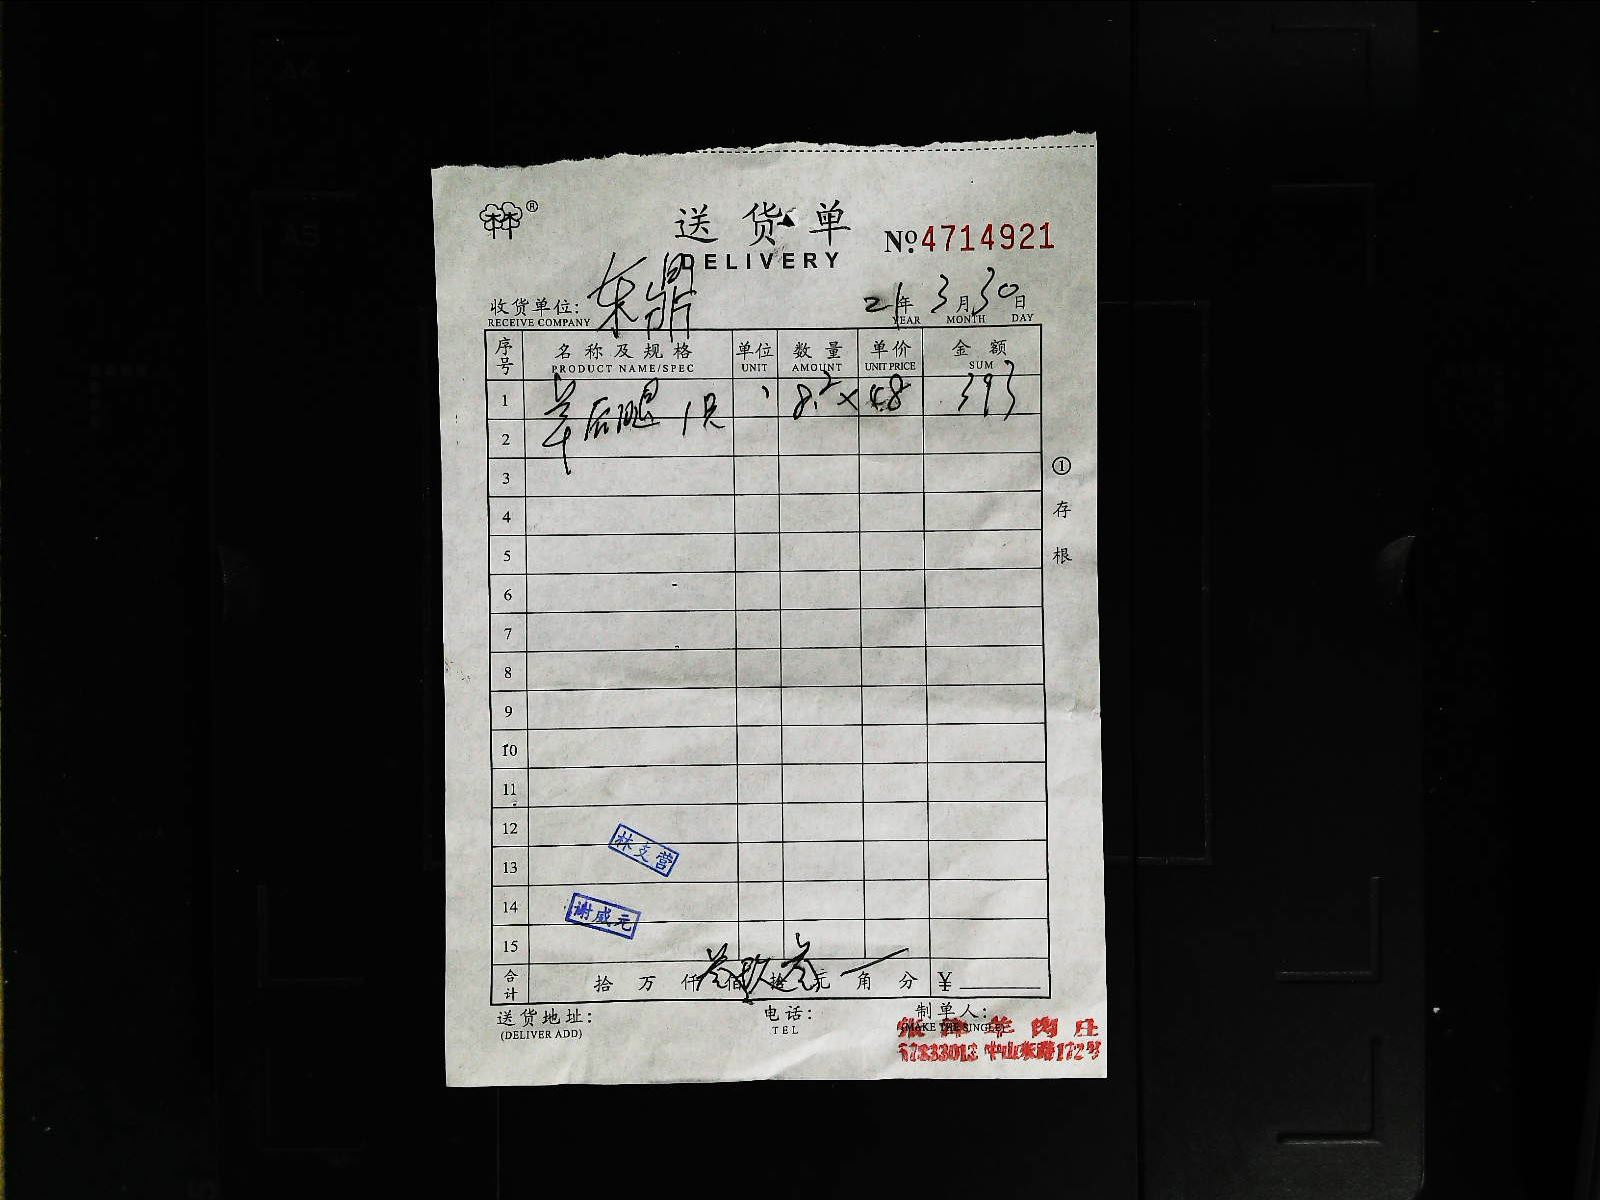 ®
送货单
DELIVERY
№ 4714921
收货单位: 东鼎 21年 3月 30日
RECEIVE COMPANY YEAR MONTH DAY
序号 名称及规格 单位 数量 单价 金额
PRODUCT NAME/SPEC UNIT AMOUNT UNIT PRICE SUM
1 羊后腿 1只 8.2 × 48 393
2
3
4
5
6
7
8
9
10
11
12
13
14
15
林支营
谢威元
合计 拾 万 仟 叁 佰 玖 拾 叁 元 角 分 ¥
送货地址: 电话: 制单人:
(DELIVER ADD) TEL (MAKE THE SINGLE)
羊肉庄
57833013 中山东路172号
①存根